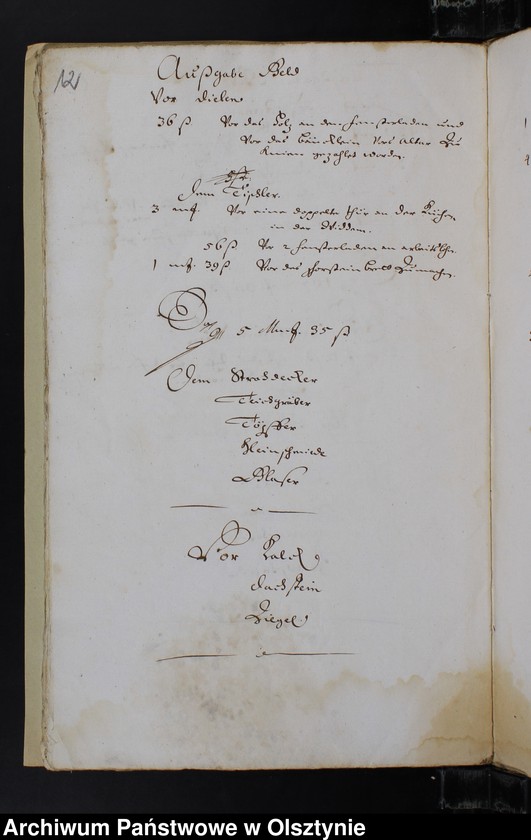 12
Außgabe Geld
Vor Dielen
36 ß Vor das Holz an den fensterladen und
Vor das bäncklein vors Altar Zu
Knien gezahlt worden.
Dem Tischler.
3 mk. Vor eine doppelte thür an der Küchen
in der Widdem.
56 ß Vor 2 fensterladen an arbeitslohn.
1 mk. 39 ß Vor das
5 Mk. 35 ß
Dem Strohdecker
Teichgräber
Töpffer
Kleinschmiede
Glaser
Vor Kalck
Dachstein
Ziegel
Archiwum Państwowe w Olsztynie